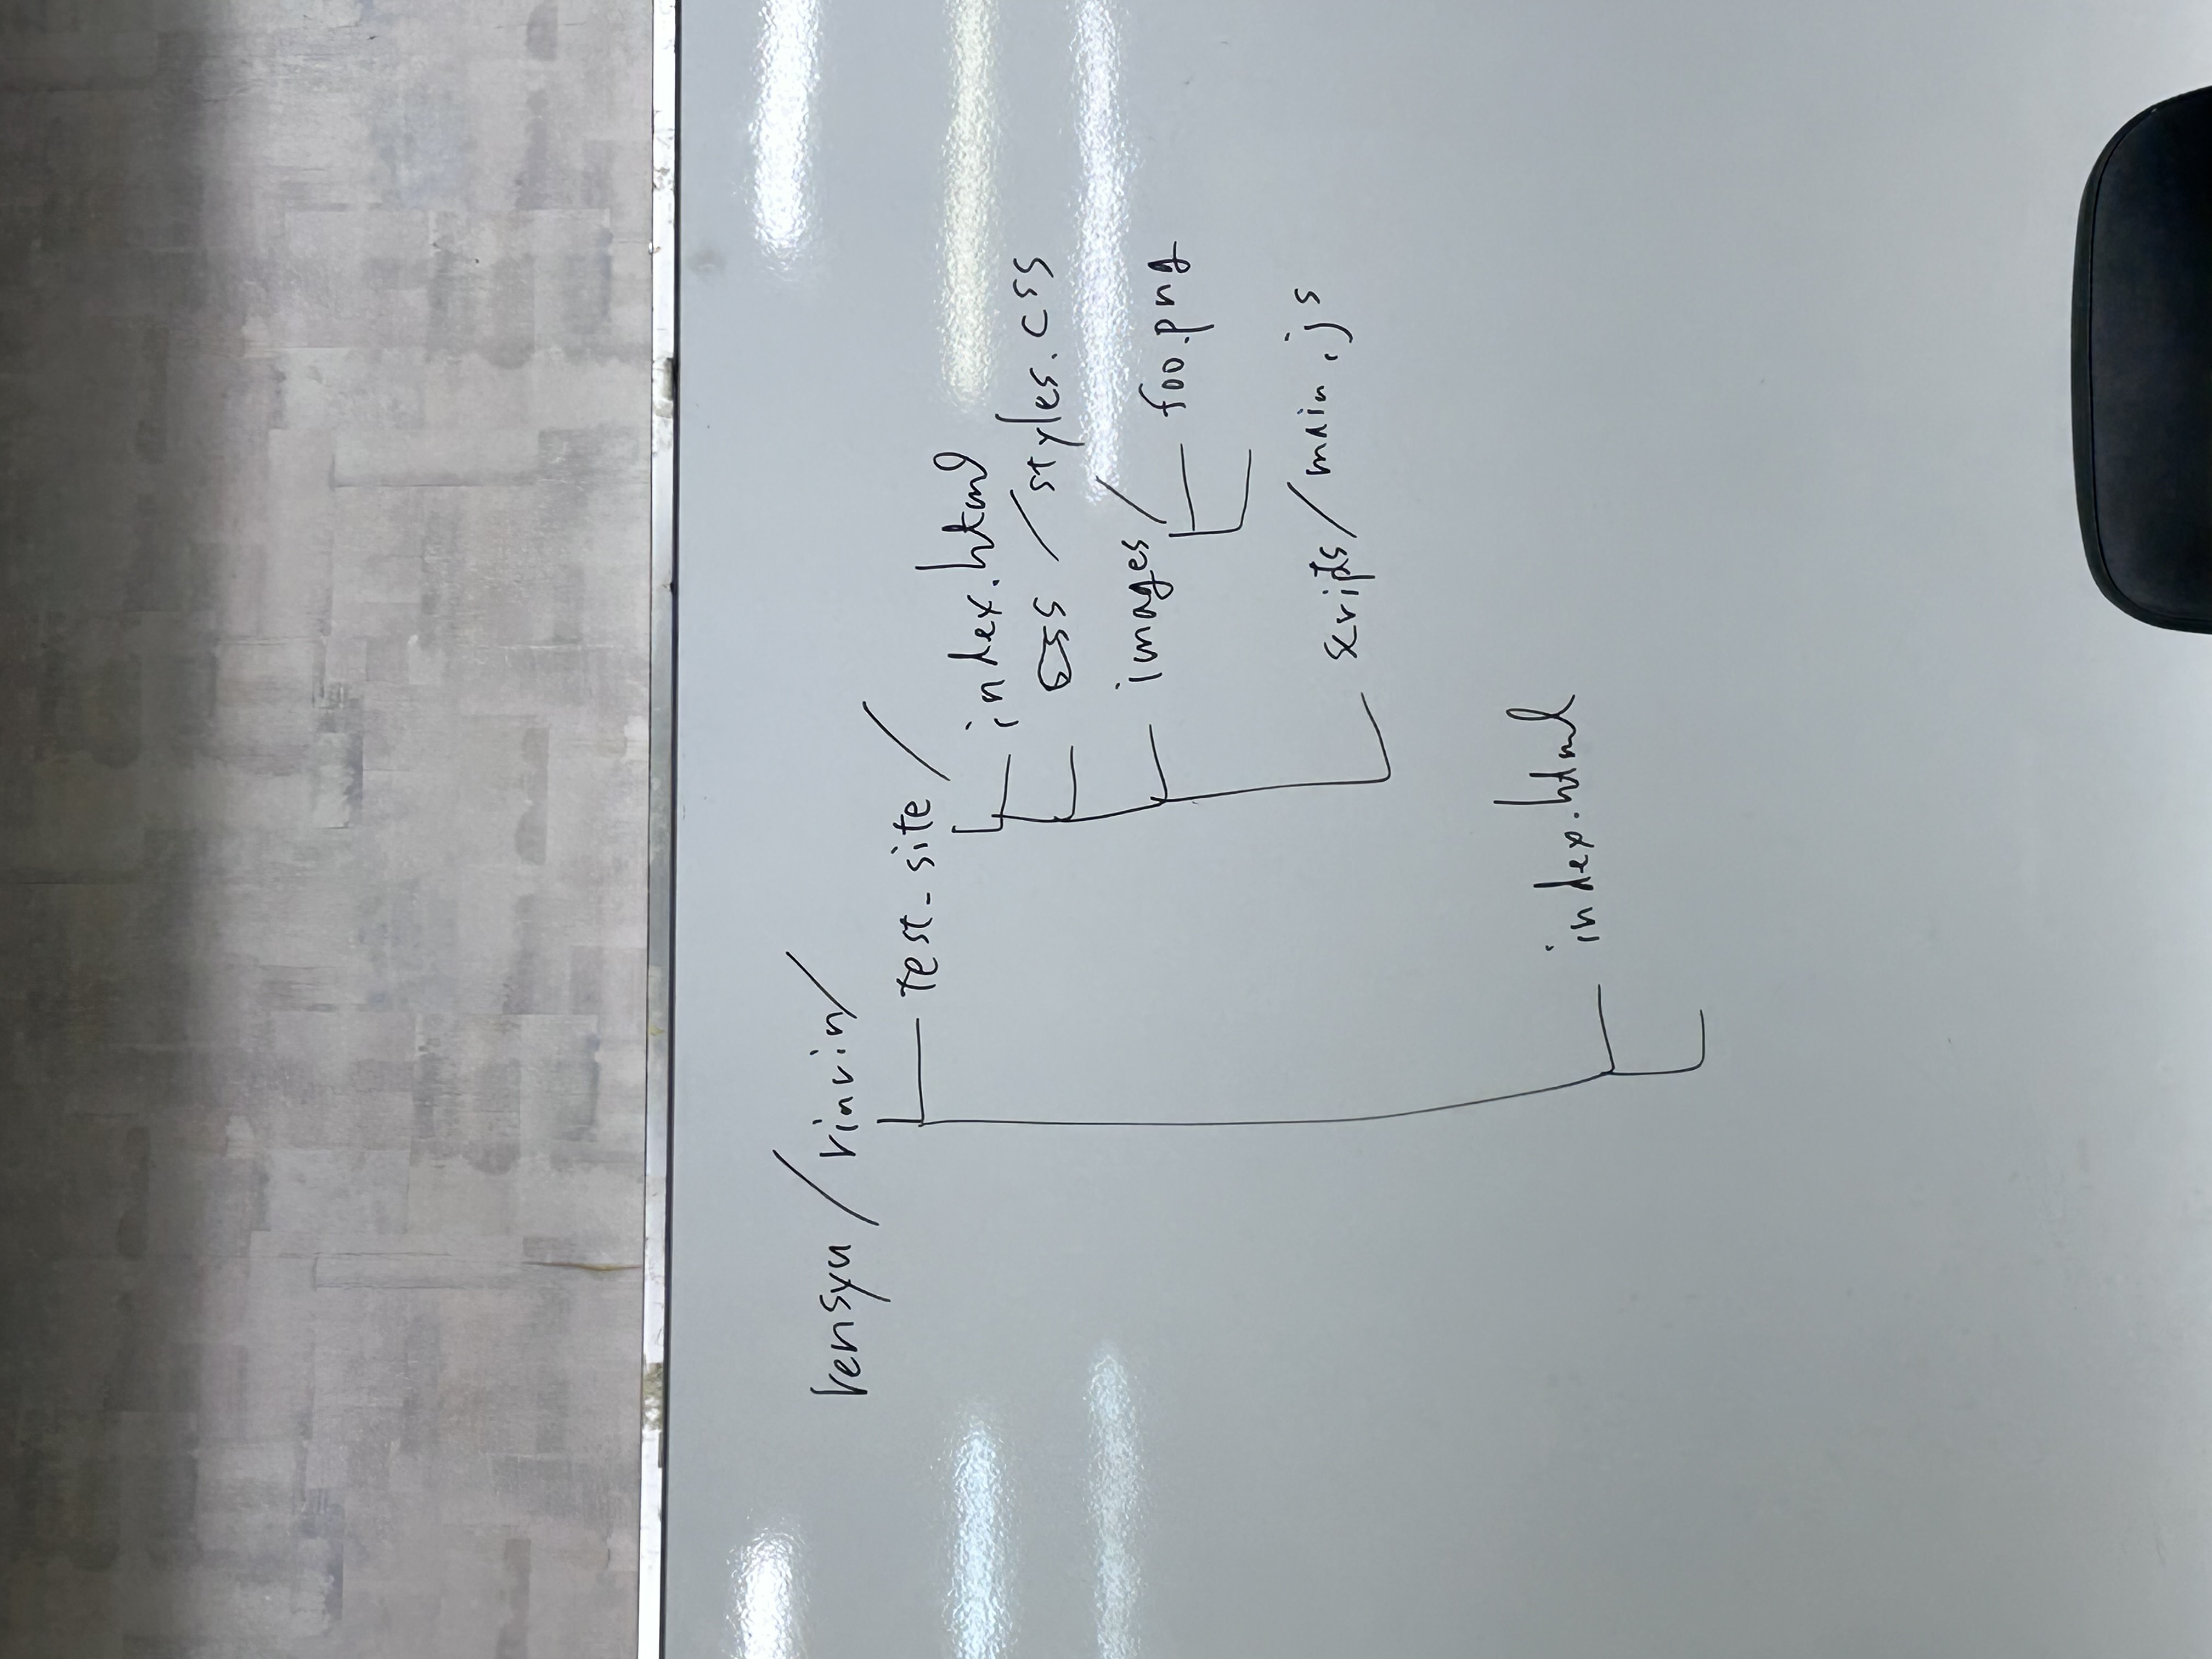 kensyu / rinrin/
test-site/
index.html
css / styles.css
images/
foo.png
scripts/main.js
index.html